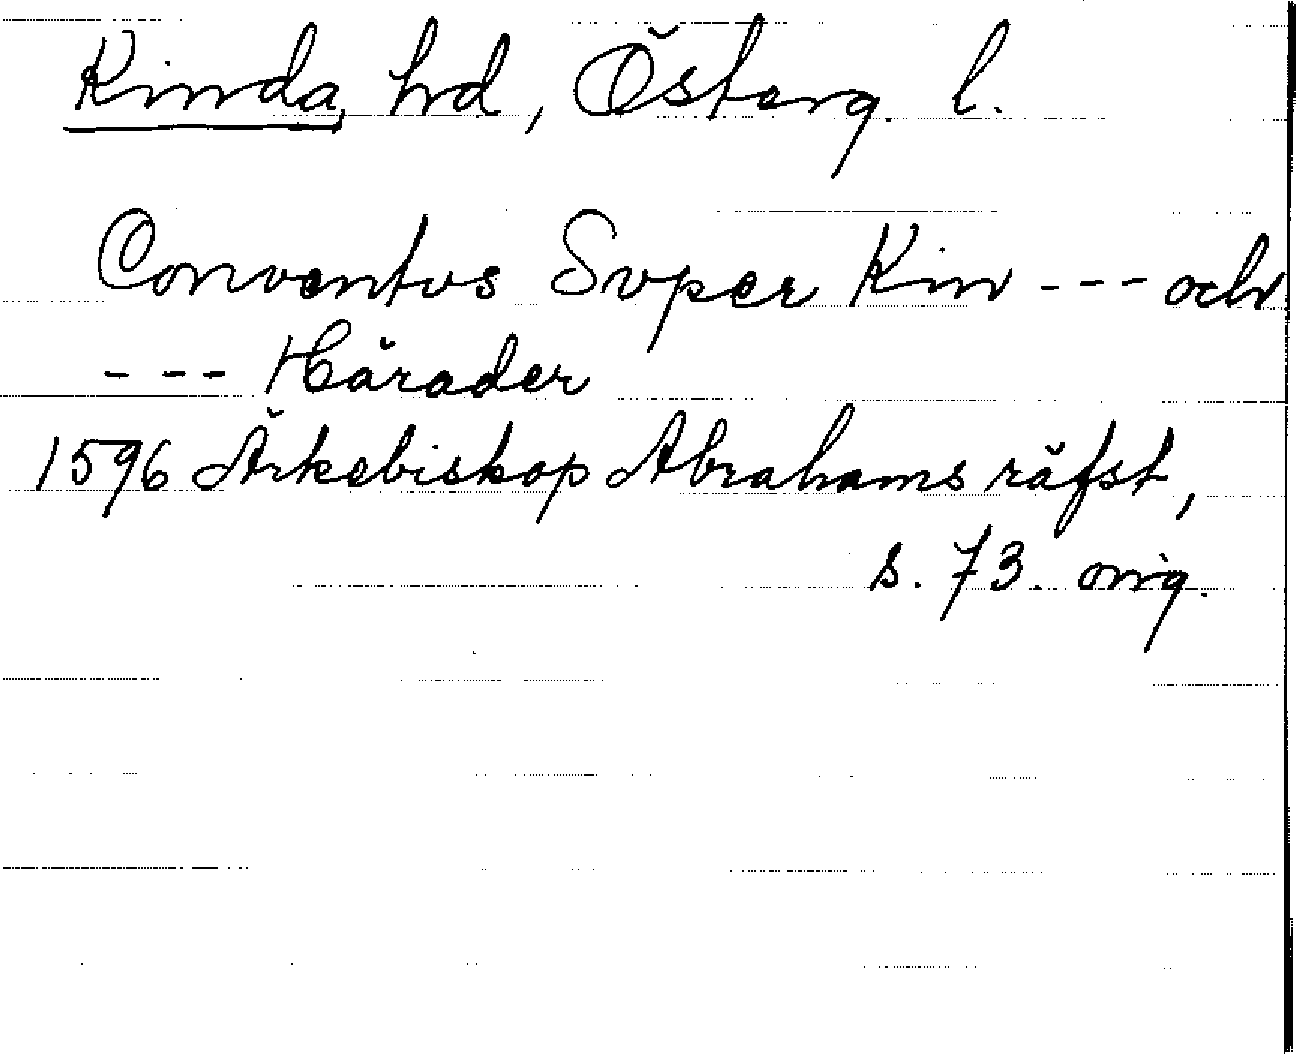 Kinda, hd, Österg. l.
Conventus Super Kin --- och
--- Härader
1596 Ärkebiskop Abrahams räfst,
s. 73. orig.